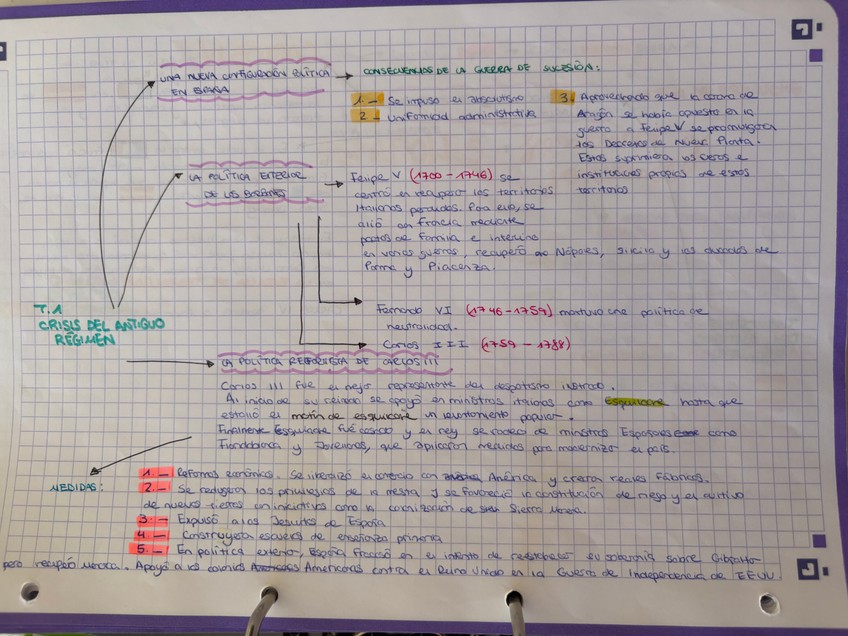 UNA NUEVA CONFIGURACIÓN POLÍTICA
EN ESPAÑA
CONSECUENCIAS DE LA GUERRA DE SUCESIÓN:
1.- Se impuso el absolutismo
2.- Uniformidad administrativa
3. Aprovechando que la corona de
Aragón se había opuesto en la
guerra a Felipe V se promulgaron
los Decretos de Nueva Planta.
Estos suprimieron los fueros e
instituciones propios de estos
territorios
LA POLÍTICA EXTERIOR
DE LOS BORBONES
Felipe V (1700-1746) se
centró en recuperar los territorios
italianos perdidos. Para ello, se
alió con Francia mediante
pactos de familia e intervino
en varias guerras, recuperó Nápoles, Sicilia y los ducados de
Parma y Piacenza.
Fernando VI (1746-1759) mantuvo una política de
neutralidad.
Carlos III (1759-1788)
T.1
CRISIS DEL ANTIGUO
RÉGIMEN
LA POLÍTICA REFORMISTA DE CARLOS III
Carlos III fue el mejor representante del despotismo ilustrado.
Al inicio de su reinado se apoyó en ministros italianos como Esquilache hasta que
estalló el motín de esquilache un levantamiento popular.
Finalmente Esquilache fué cesado y el rey se rodeó de ministros Españoles como
Floridablanca y Jovellanos, que aplicaron medidas para modernizar el país.
MEDIDAS:
1.- Reformas económicas. Se liberalizó el comercio con América y crearon reales fábricas.
2.- Se redujeron los privilegios de la mesta y se favoreció la constitución de riego y el cultivo
de nuevas tierras con iniciativas como la colonización de Sierra Morena.
3.- Expulsó a los Jesuitas de España
4.- Construyeron escuelas de enseñanza primaria
5.- En política exterior, España fracasó en el intento de reestablecer su soberanía sobre Gibraltar
pero recuperó Menorca. Apoyó a los colonos Americanos contra el Reino Unido en la Guerra de Independencia de EEUU.